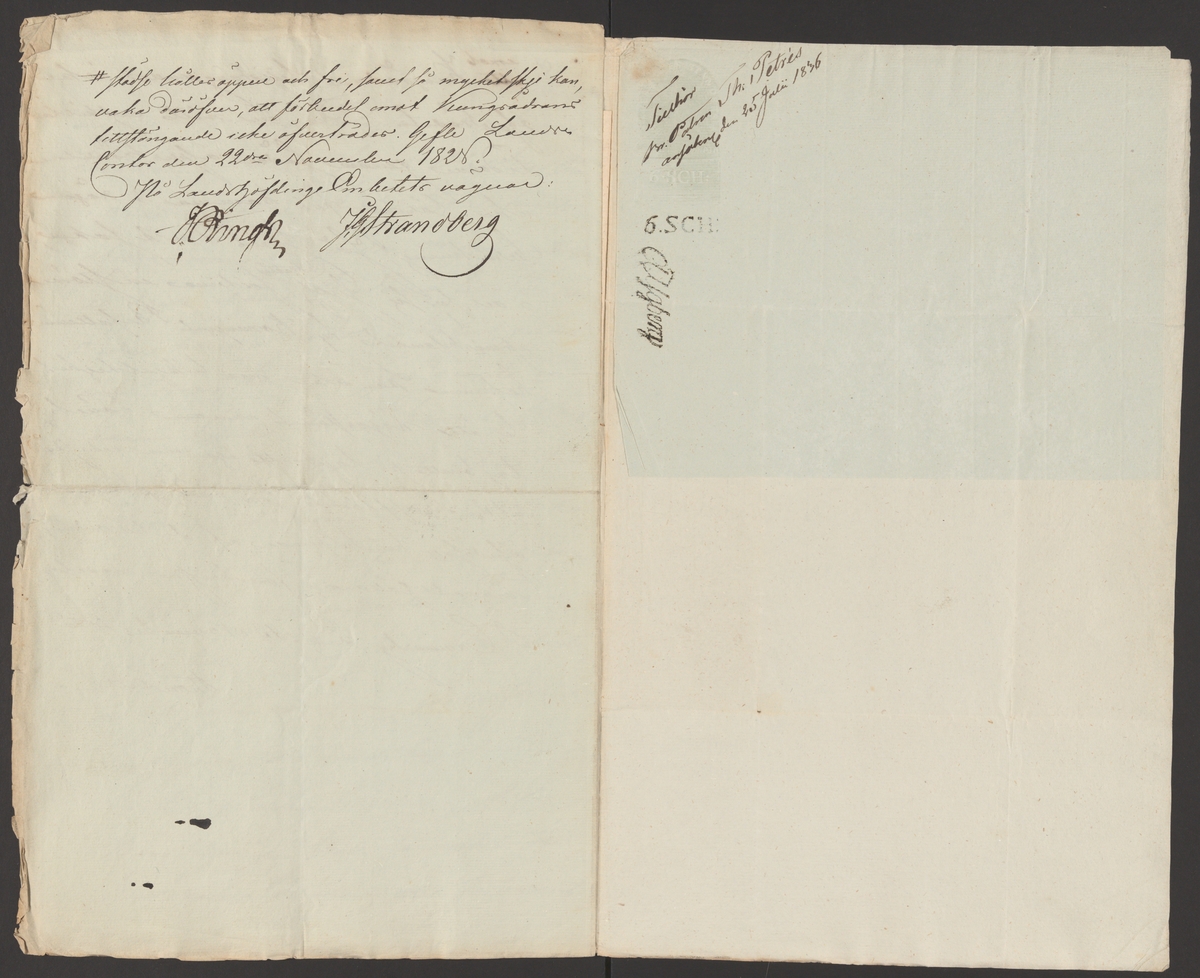 # städse hålles öppen och fri, samt så mycket ske kan,
vaka däröfver, att förbudet emot Kungsådrans
tillstängande icke öfverträdes. Gefle Lands
Contor den 22dra November 1828.
På Landshöfdinge Embetets vägnar:
J G Strandberg
Tillhör
Br. Patron Th: Petrés
ansökning den 25 Julii 1836
6.SCH: